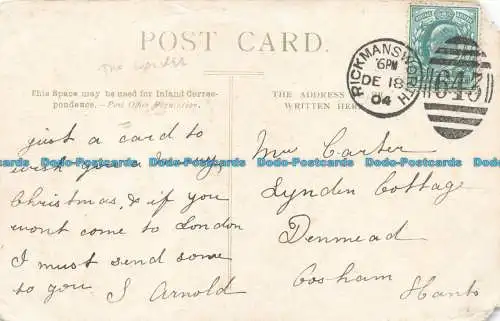 POST CARD.
This Space may be used for Inland Corres-
pondence. - Post Office Regulation.
THE ADDRESS
WRITTEN HERE
RICKMANSWORTH
6 PM
DE 18
04
645
just a card to
wish you a
Christmas, & if you
wont come to London
I must send some
to you J Arnold
Mr Carter
Lynden Cottage
Denmead
Cosham
Hants
Dodo-Postcards Dodo-Postcards Dodo-Postcards Dodo-Postcards Dodo-Postcards